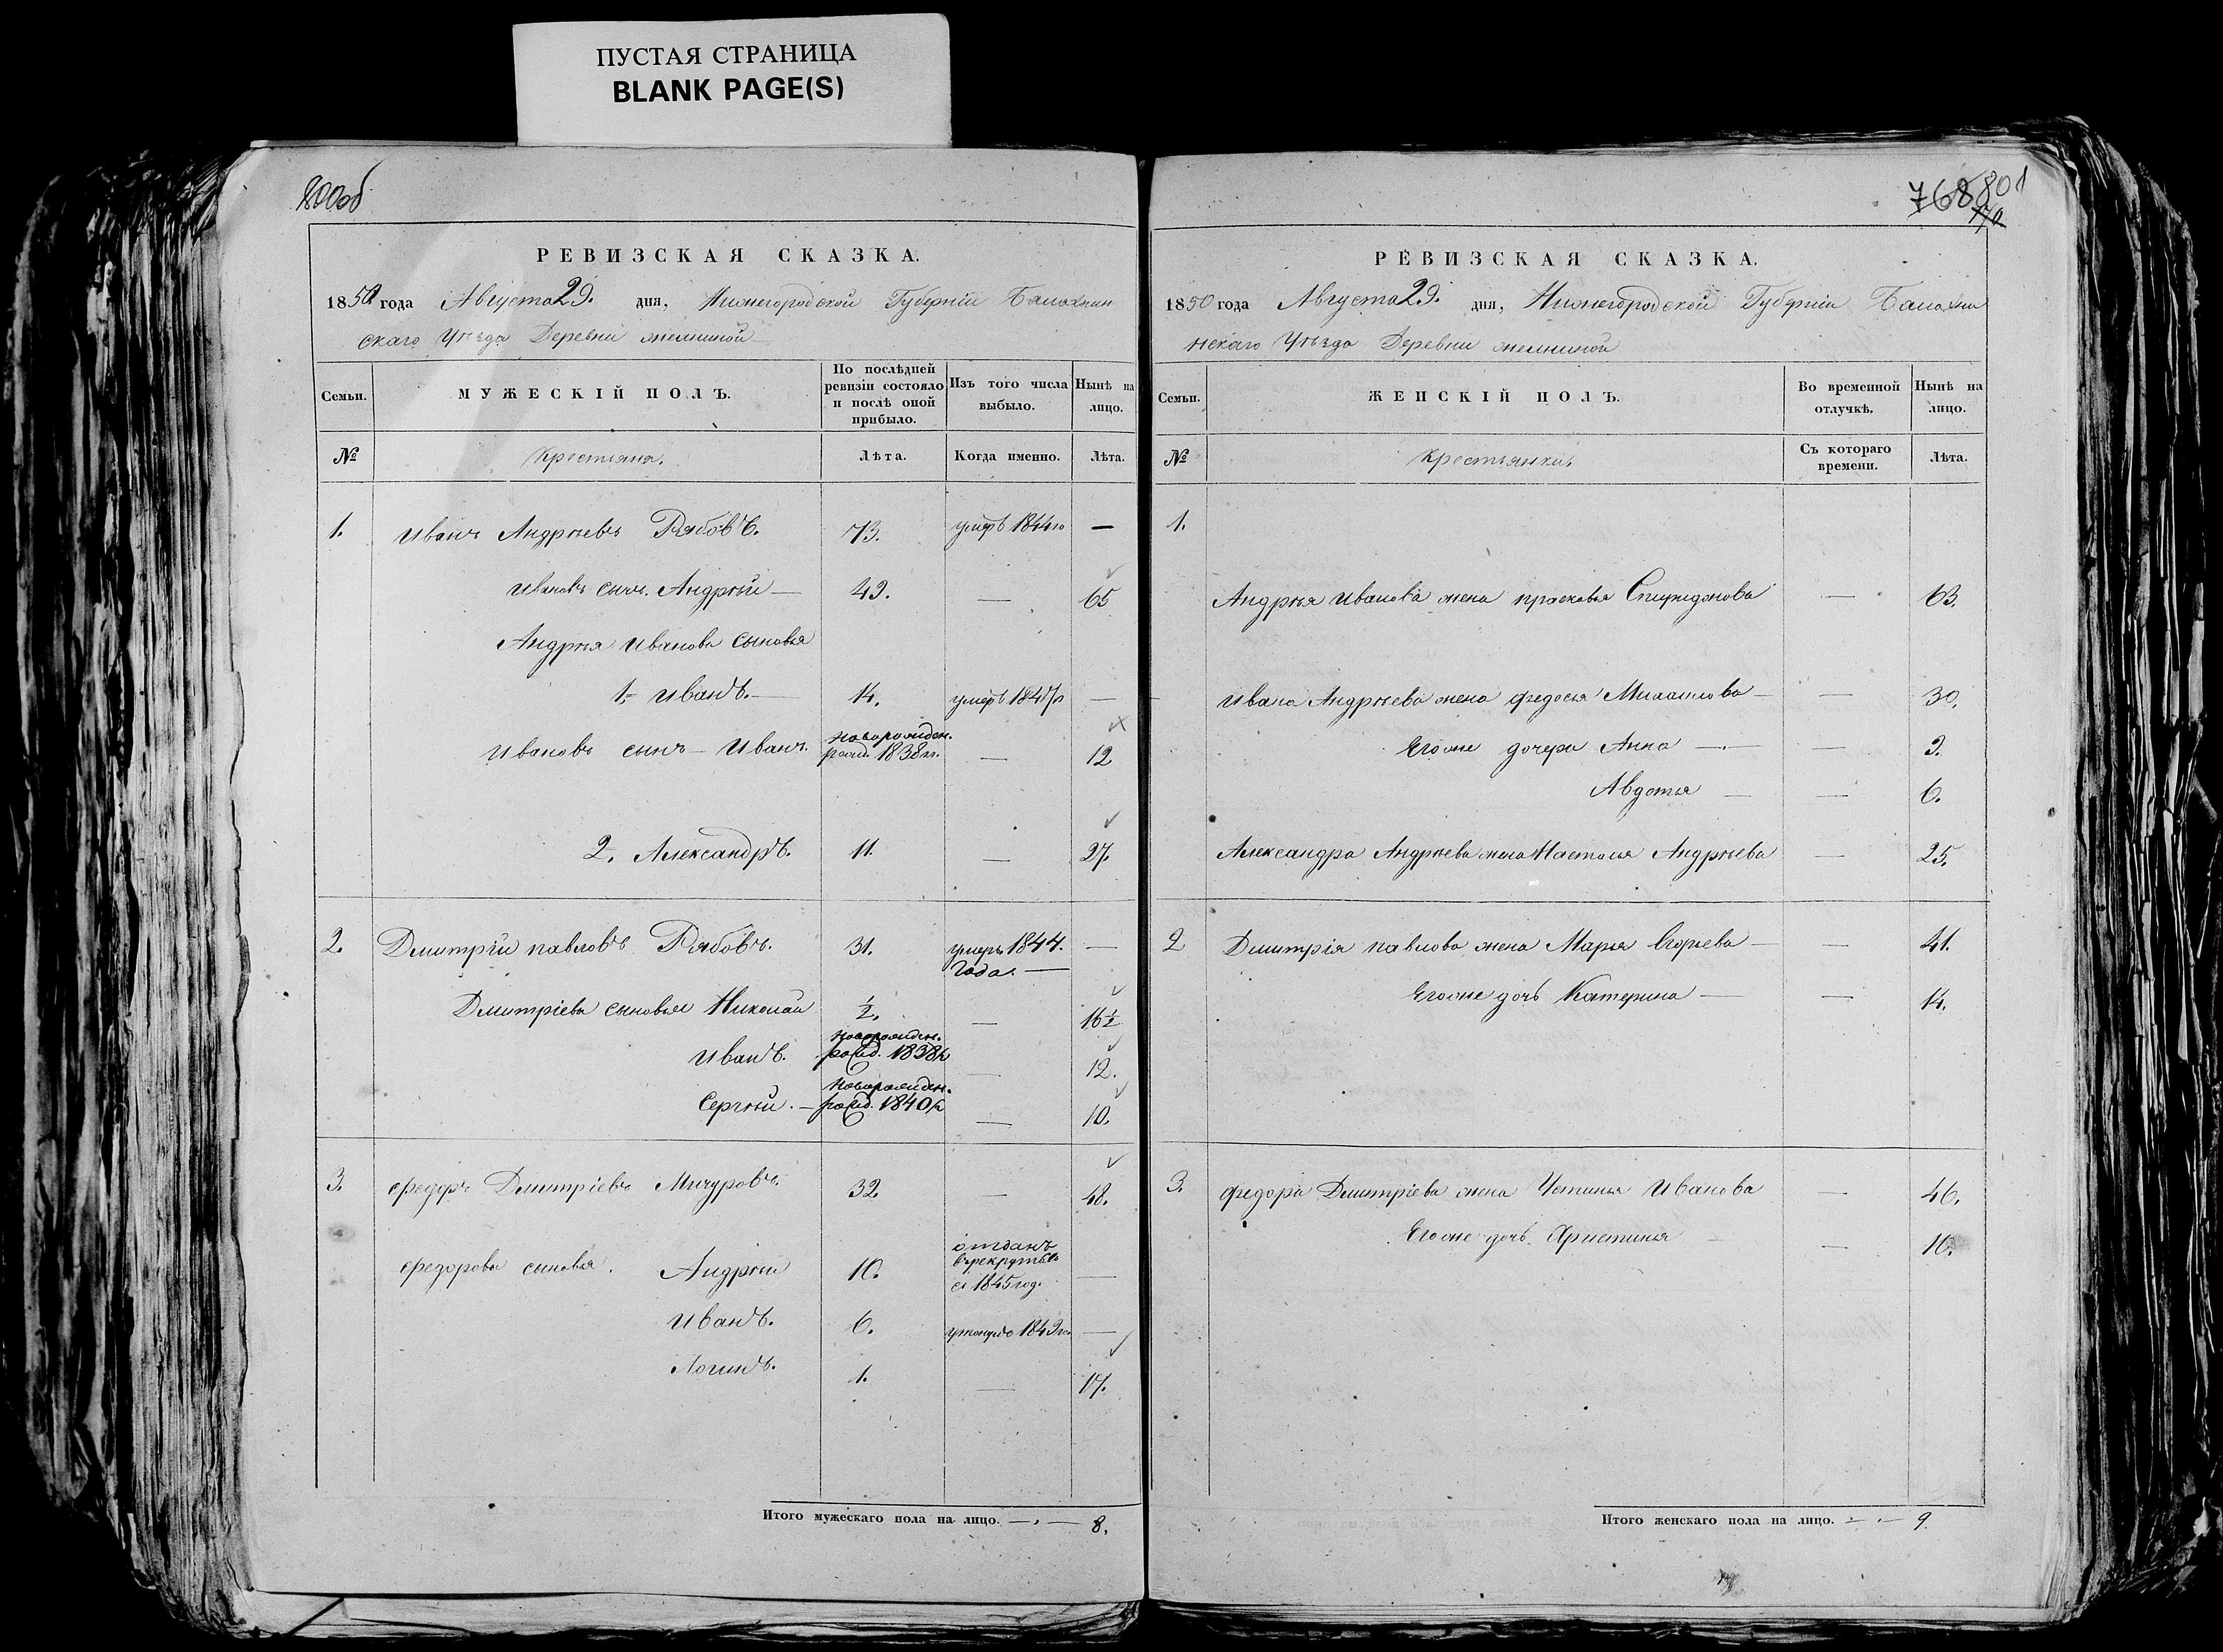 ПУСТАЯ СТРАНИЦА
BLANK PAGE(S)
800об
РЕВИЗСКАЯ СКАЗКА.
1850 года Августа 29. дня, Нижегородской Губерніи Балахнин
скаго Уѣзда Деревни
Семьи.
МУЖЕСКІЙ ПОЛЪ.
По послѣдней ревизіи состояло и послѣ оной прибыло.
Изъ того числа выбыло.
Нынѣ на лицо.
№
Крестьяне.
Лѣта.
Когда именно.
Лѣта.
1. Иванъ Андрѣевъ Рябовъ. 73. умеръ 1844го —
Ивановъ сынъ. Андрѣй — 49. — 65
Андрѣя Иванова сыновья
1. Иванъ. — 14. умеръ 1847го —
Ивановъ сынъ — Иванъ. новорожден. рожд. 1838г. — 12
2. Александръ. 11. — 27.
2. Дмитрій павловъ Рябовъ. 31. умеръ 1844. года. — —
Дмитріева сыновья Николай ½. — 16½
Иванъ. новорожден. рожд. 1838г — 12.
Сергѣй. — новорожден. рожд. 1840г — 10.
3. федоръ Дмитріевъ Мичуровъ. 32. — 48.
федорова сыновья. Андрѣй 10. отданъ въ рекруты въ 1845 год. —
Иванъ. 6. 1849го —
Логинъ. 1. — 17.
Итого мужескаго пола на лицо. — 8.
768 801
РЕВИЗСКАЯ СКАЗКА.
1850 года Августа 29. дня, Нижегородской Губерніи Балахни
нскаго Уѣзда Деревни
Семьи.
ЖЕНСКІЙ ПОЛЪ.
Во временной отлучкѣ.
Нынѣ на лицо.
№
Крестьянки.
Съ котораго времени.
Лѣта.
1.
Андрѣя Иванова жена прасковья Спиридонова — 63.
Ивана Андрѣева жена федосья Михайлова — — 39.
Его же дочери Анна — — 9.
Авдотья — — 6.
Александра Андрѣева жена Настасья Андрѣева — 25.
2 Дмитрія павлова жена Марья Егорьева — — 41.
Его же дочь Катерина — — 14.
3. федора Дмитріева жена Устинья Иванова — 46.
Его же дочь Христинья — 10.
Итого женскаго пола на лицо. — 9.